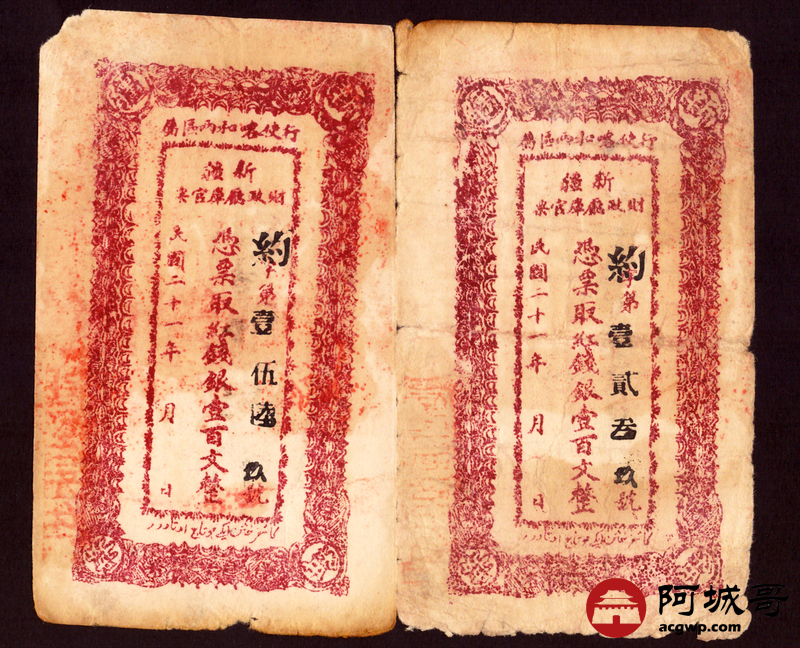 行使喀和两區
新疆
財政廳庫官票
約字第壹伍陸玖號
憑票取紅錢銀壹百文整
民國二十一年 月 日
行使喀和两區
新疆
財政廳庫官票
約字第壹貳叁玖號
憑票取紅錢銀壹百文整
民國二十一年 月 日
阿城哥
acgwp.com